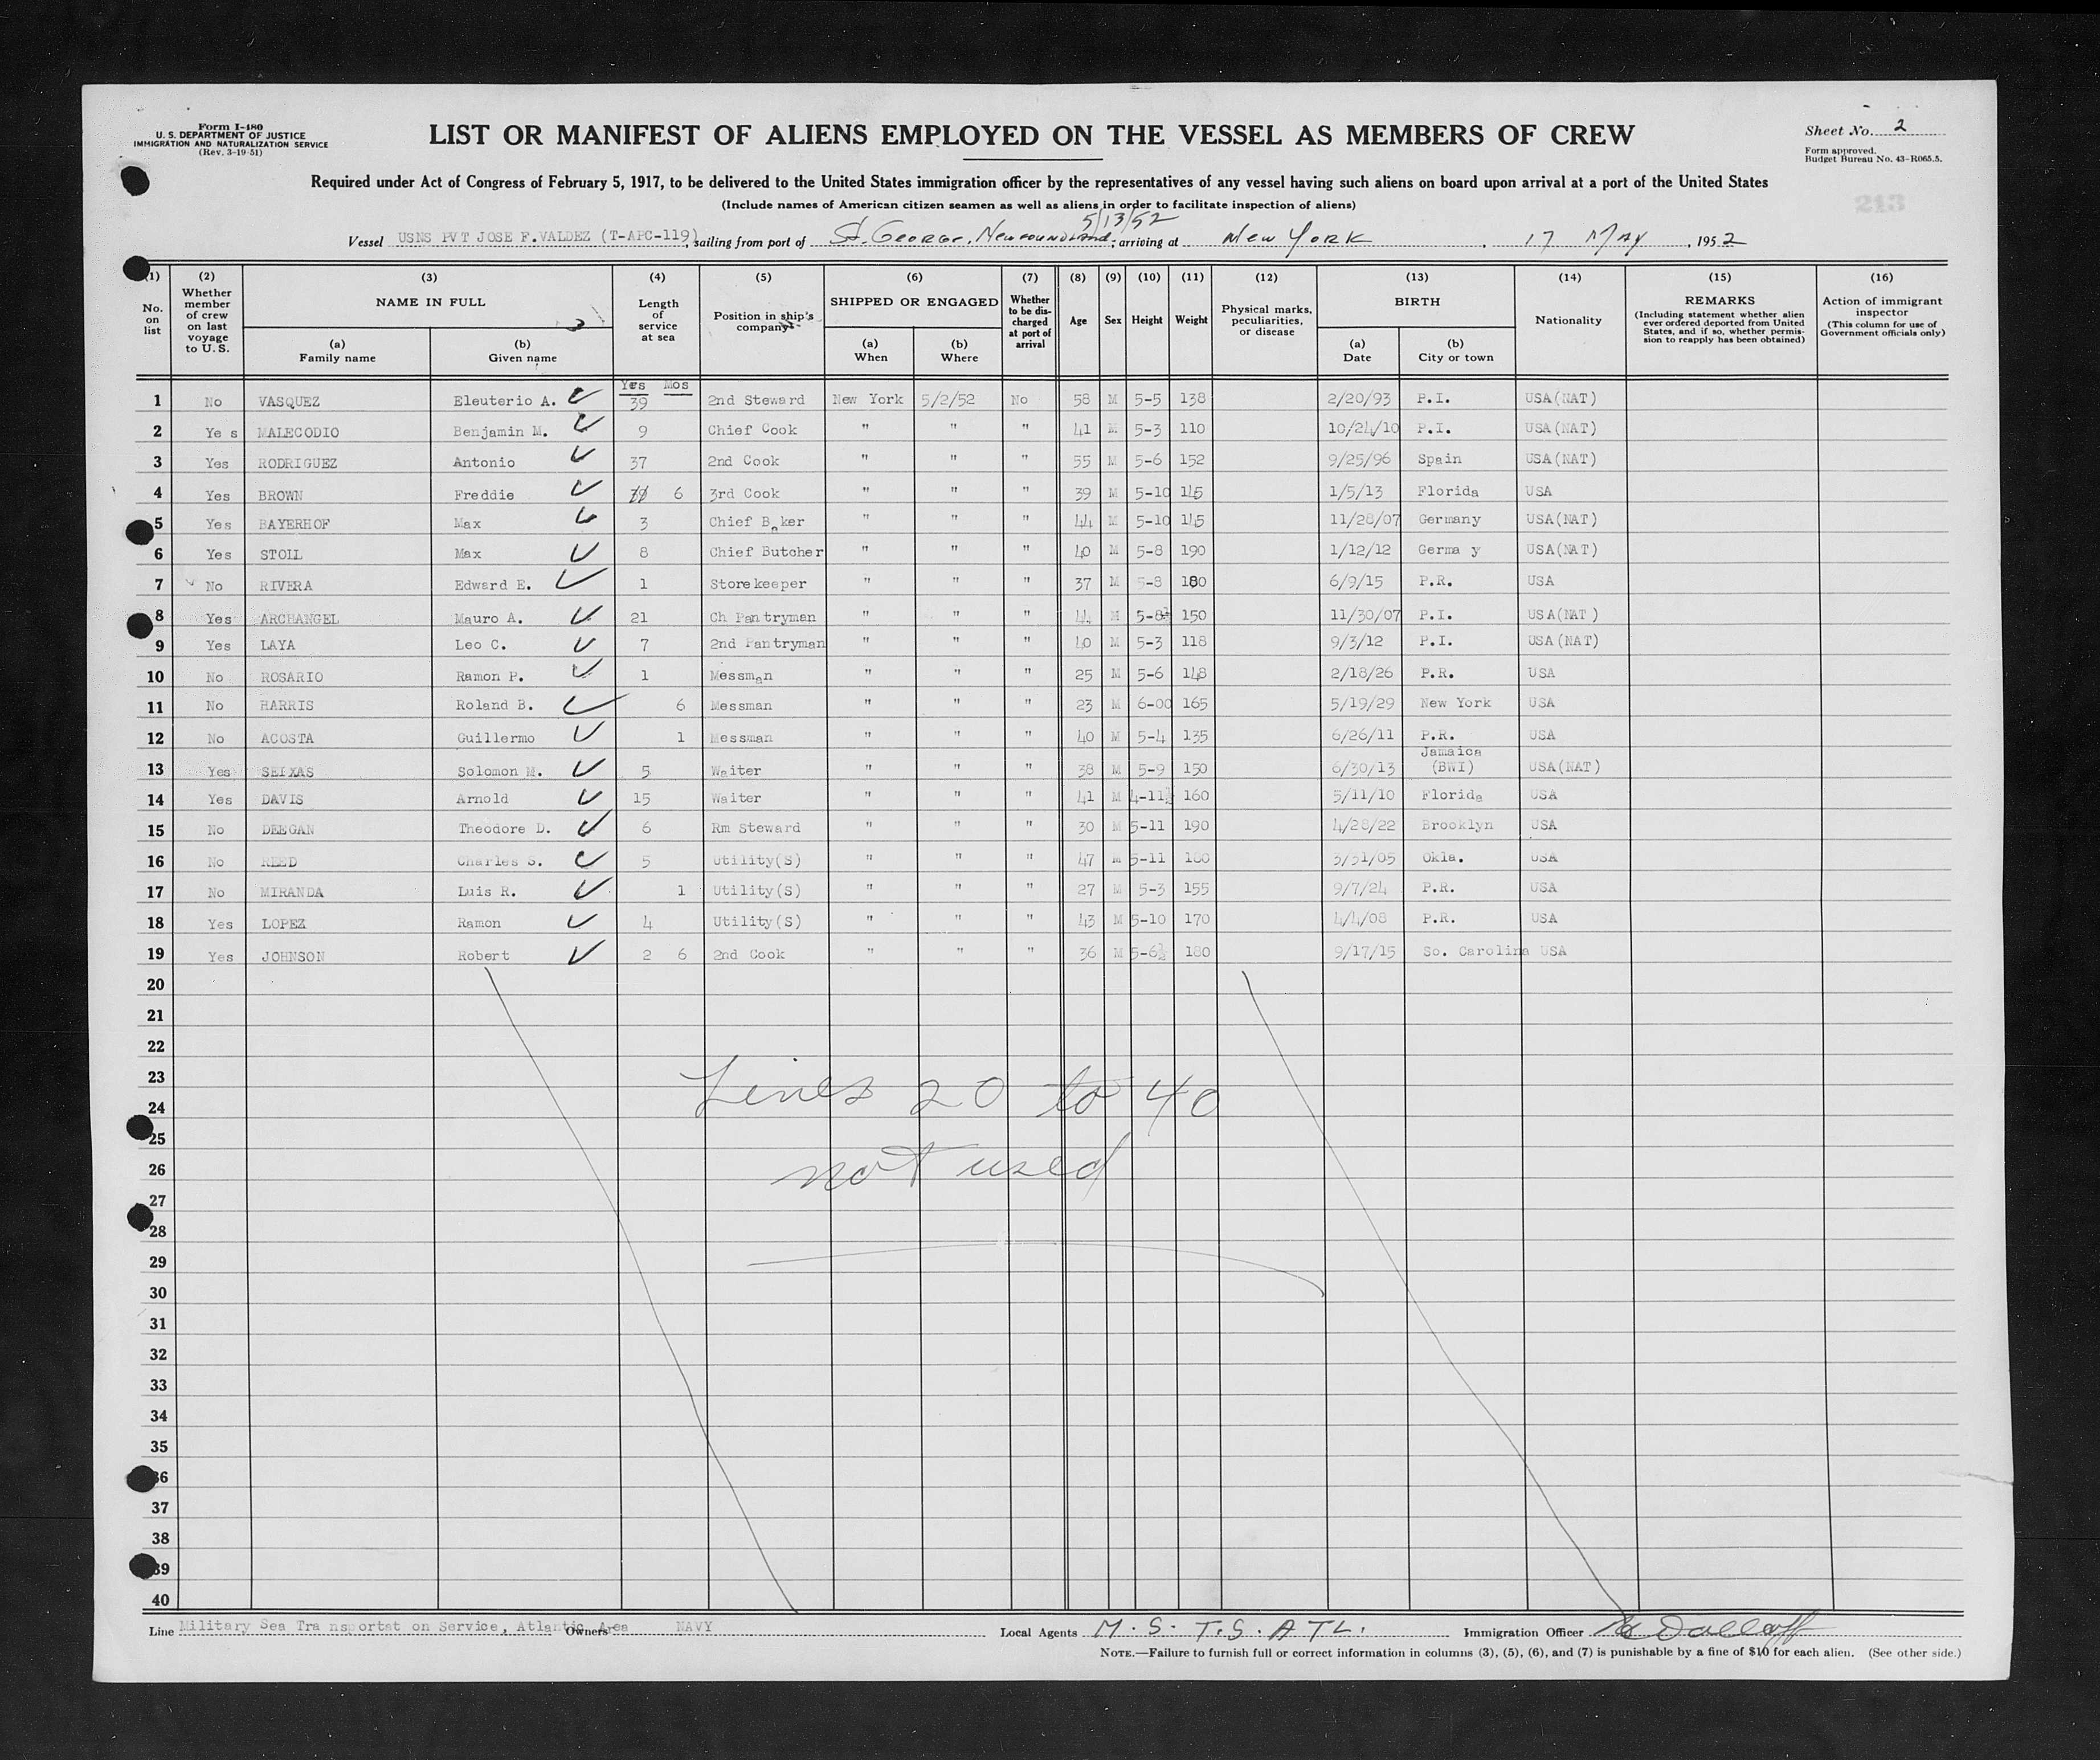 Form I-480
U. S. DEPARTMENT OF JUSTICE
IMMIGRATION AND NATURALIZATION SERVICE
(Rev. 3-19-51)
LIST OR MANIFEST OF ALIENS EMPLOYED ON THE VESSEL AS MEMBERS OF CREW
Sheet No. 2
Form approved.
Budget Bureau No. 43-R065.5.
Required under Act of Congress of February 5, 1917, to be delivered to the United States immigration officer by the representatives of any vessel having such aliens on board upon arrival at a port of the United States
(Include names of American citizen seamen as well as aliens in order to facilitate inspection of aliens)
213
5/13/52
Vessel USNS PVT JOSE F.VALDEZ (T-APC-119), sailing from port of St. George, Newfoundland; arriving at New York, 17 May, 1952
(1) No. on list
(2) Whether member of crew on last voyage to U. S.
(3) NAME IN FULL (a) Family name (b) Given name
(4) Length of service at sea
(5) Position in ship's company
(6) SHIPPED OR ENGAGED (a) When (b) Where
(7) Whether to be discharged at port of arrival
(8) Age
(9) Sex
(10) Height
(11) Weight
(12) Physical marks, peculiarities, or disease
(13) BIRTH (a) Date (b) City or town
(14) Nationality
(15) REMARKS (Including statement whether alien ever ordered deported from United States, and if so, whether permission to reapply has been obtained)
(16) Action of immigrant inspector (This column for use of Government officials only)
Yrs Mos
1 No VASQUEZ Eleuterio A. 39 2nd Steward New York 5/2/52 No 58 M 5-5 138 2/20/93 P.I. USA(NAT)
2 Ye s MALECODIO Benjamin M. 9 Chief Cook " " " 41 M 5-3 110 10/24/10 P.I. USA(NAT)
3 Yes RODRIGUEZ Antonio 37 2nd Cook " " " 55 M 5-6 152 9/25/96 Spain USA(NAT)
4 Yes BROWN Freddie 6 3rd Cook " " " 39 M 5-10 145 1/5/13 Florida USA
5 Yes BAYERHOF Max 3 Chief Baker " " " 44 M 5-10 145 11/28/07 Germany USA(NAT)
6 Yes STOIL Max 8 Chief Butcher " " " 40 M 5-8 190 1/12/12 Germa y USA(NAT)
7 No RIVERA Edward E. 1 Storekeeper " " " 37 M 5-8 180 6/9/15 P.R. USA
8 Yes ARCHANGEL Mauro A. 21 Ch Pantryman " " " 44 M 5-8½ 150 11/30/07 P.I. USA(NAT)
9 Yes LAYA Leo C. 7 2nd Pantryman " " " 40 M 5-3 118 9/3/12 P.I. USA(NAT)
10 No ROSARIO Ramon P. 1 Messman " " " 25 M 5-6 148 2/18/26 P.R. USA
11 No HARRIS Roland B. 6 Messman " " " 23 M 6-00 165 5/19/29 New York USA
12 No ACOSTA Guillermo 1 Messman " " " 40 M 5-4 135 6/26/11 P.R. USA
13 Yes SEIXAS Solomon M. 5 Waiter " " " 38 M 5-9 150 6/30/13 Jamaica (BWI) USA(NAT)
14 Yes DAVIS Arnold 15 Waiter " " " 41 M 4-11½ 160 5/11/10 Florida USA
15 No DEEGAN Theodore D. 6 Rm Steward " " " 30 M 5-11 190 4/28/22 Brooklyn USA
16 No REED Charles S. 5 Utility(S) " " " 47 M 5-11 180 3/31/05 Okla. USA
17 No MIRANDA Luis R. 1 Utility(S) " " " 27 M 5-3 155 9/7/24 P.R. USA
18 Yes LOPEZ Ramon 4 Utility(S) " " " 43 M 5-10 170 4/4/08 P.R. USA
19 Yes JOHNSON Robert 2 6 2nd Cook " " " 36 M 5-6½ 180 9/17/15 So. Carolina USA
20
21
22
23
24
25
26
27
28
29
30
31
32
33
34
35
36
37
38
39
40
Lines 20 to 40
not used
Line Military Sea Tra nsportat on Service, Atlantic Area Owners NAVY Local Agents M.S.T.S. ATL. Immigration Officer
NOTE.—Failure to furnish full or correct information in columns (3), (5), (6), and (7) is punishable by a fine of $10 for each alien. (See other side.)